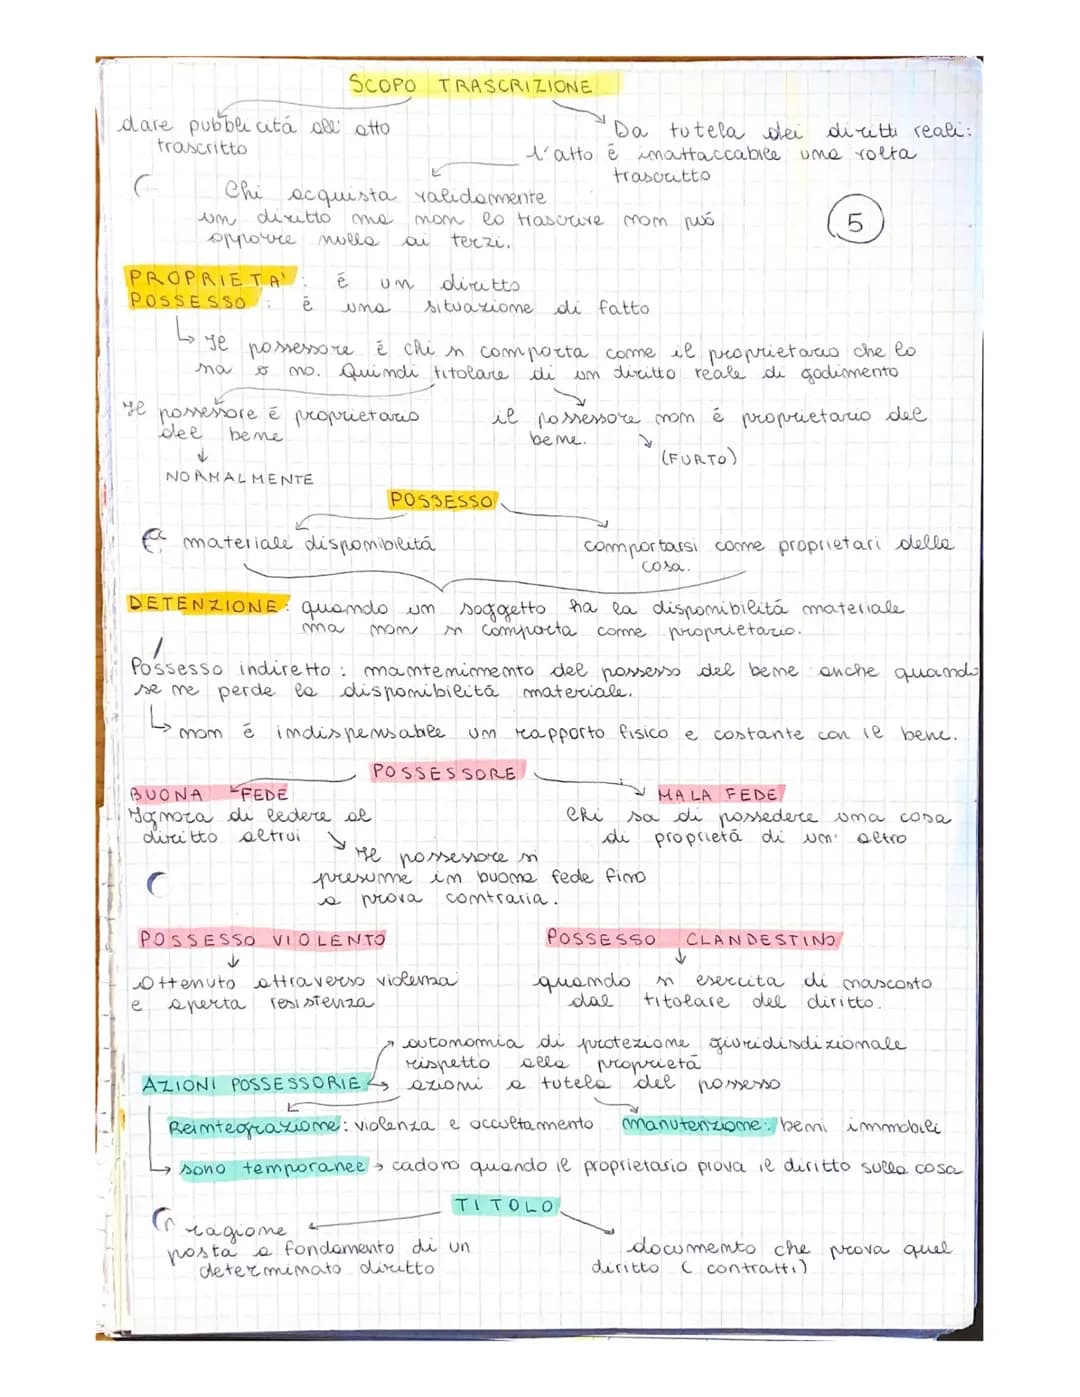 SCOPO TRASCRIZIONE
dare pubblicitá all' atto
trascritto
Da tutela dei diritti reali:
l'atto é inattaccabile una volta
trascritto
Chi acquista validamente
un diritto ma non lo trascrive non puó
opporre nulla ai terzi.
5
PROPRIETA': é un diritto
POSSESSO: é una situazione di fatto
Il possessore é chi si comporta come il proprietario che lo
sia o no. Quindi titolare di un diritto reale di godimento
Il possessore é proprietario
del bene
NORMALMENTE
il possessore non é proprietario del
bene.
(FURTO)
POSSESSO
materiale disponibilitá
comportarsi come proprietari della
cosa.
DETENZIONE: quando un soggetto ha la disponibilitá materiale
ma non si comporta come proprietario.
Possesso indiretto: mantenimento del possesso del bene anche quando
se ne perde la disponibilitá materiale.
non é indispensabile un rapporto fisico e costante con il bene.
POSSESSORE
BUONA FEDE
Ignora di ledere al
diritto altrui
Il possessore si
presume in buona fede fino
a prova contraria.
MALA FEDE
Chi sa di possedere una cosa
di proprietá di un' altro
POSSESSO VIOLENTO
Ottenuto attraverso violenza
e aperta resistenza
POSSESSO CLANDESTINO
quando si esercita di nascosto
dal titolare del diritto.
autonomia di protezione giuridisdizionale
rispetto alla proprietá
AZIONI POSSESSORIE azioni a tutela del possesso
Reintegrazione: violenza e occultamento
manutenzione: beni immobili
sono temporanee → cadono quando il proprietario prova il diritto sulla cosa
TITOLO
ragione
posta a fondamento di un
determinato diritto
documento che prova quel
diritto (contratti)